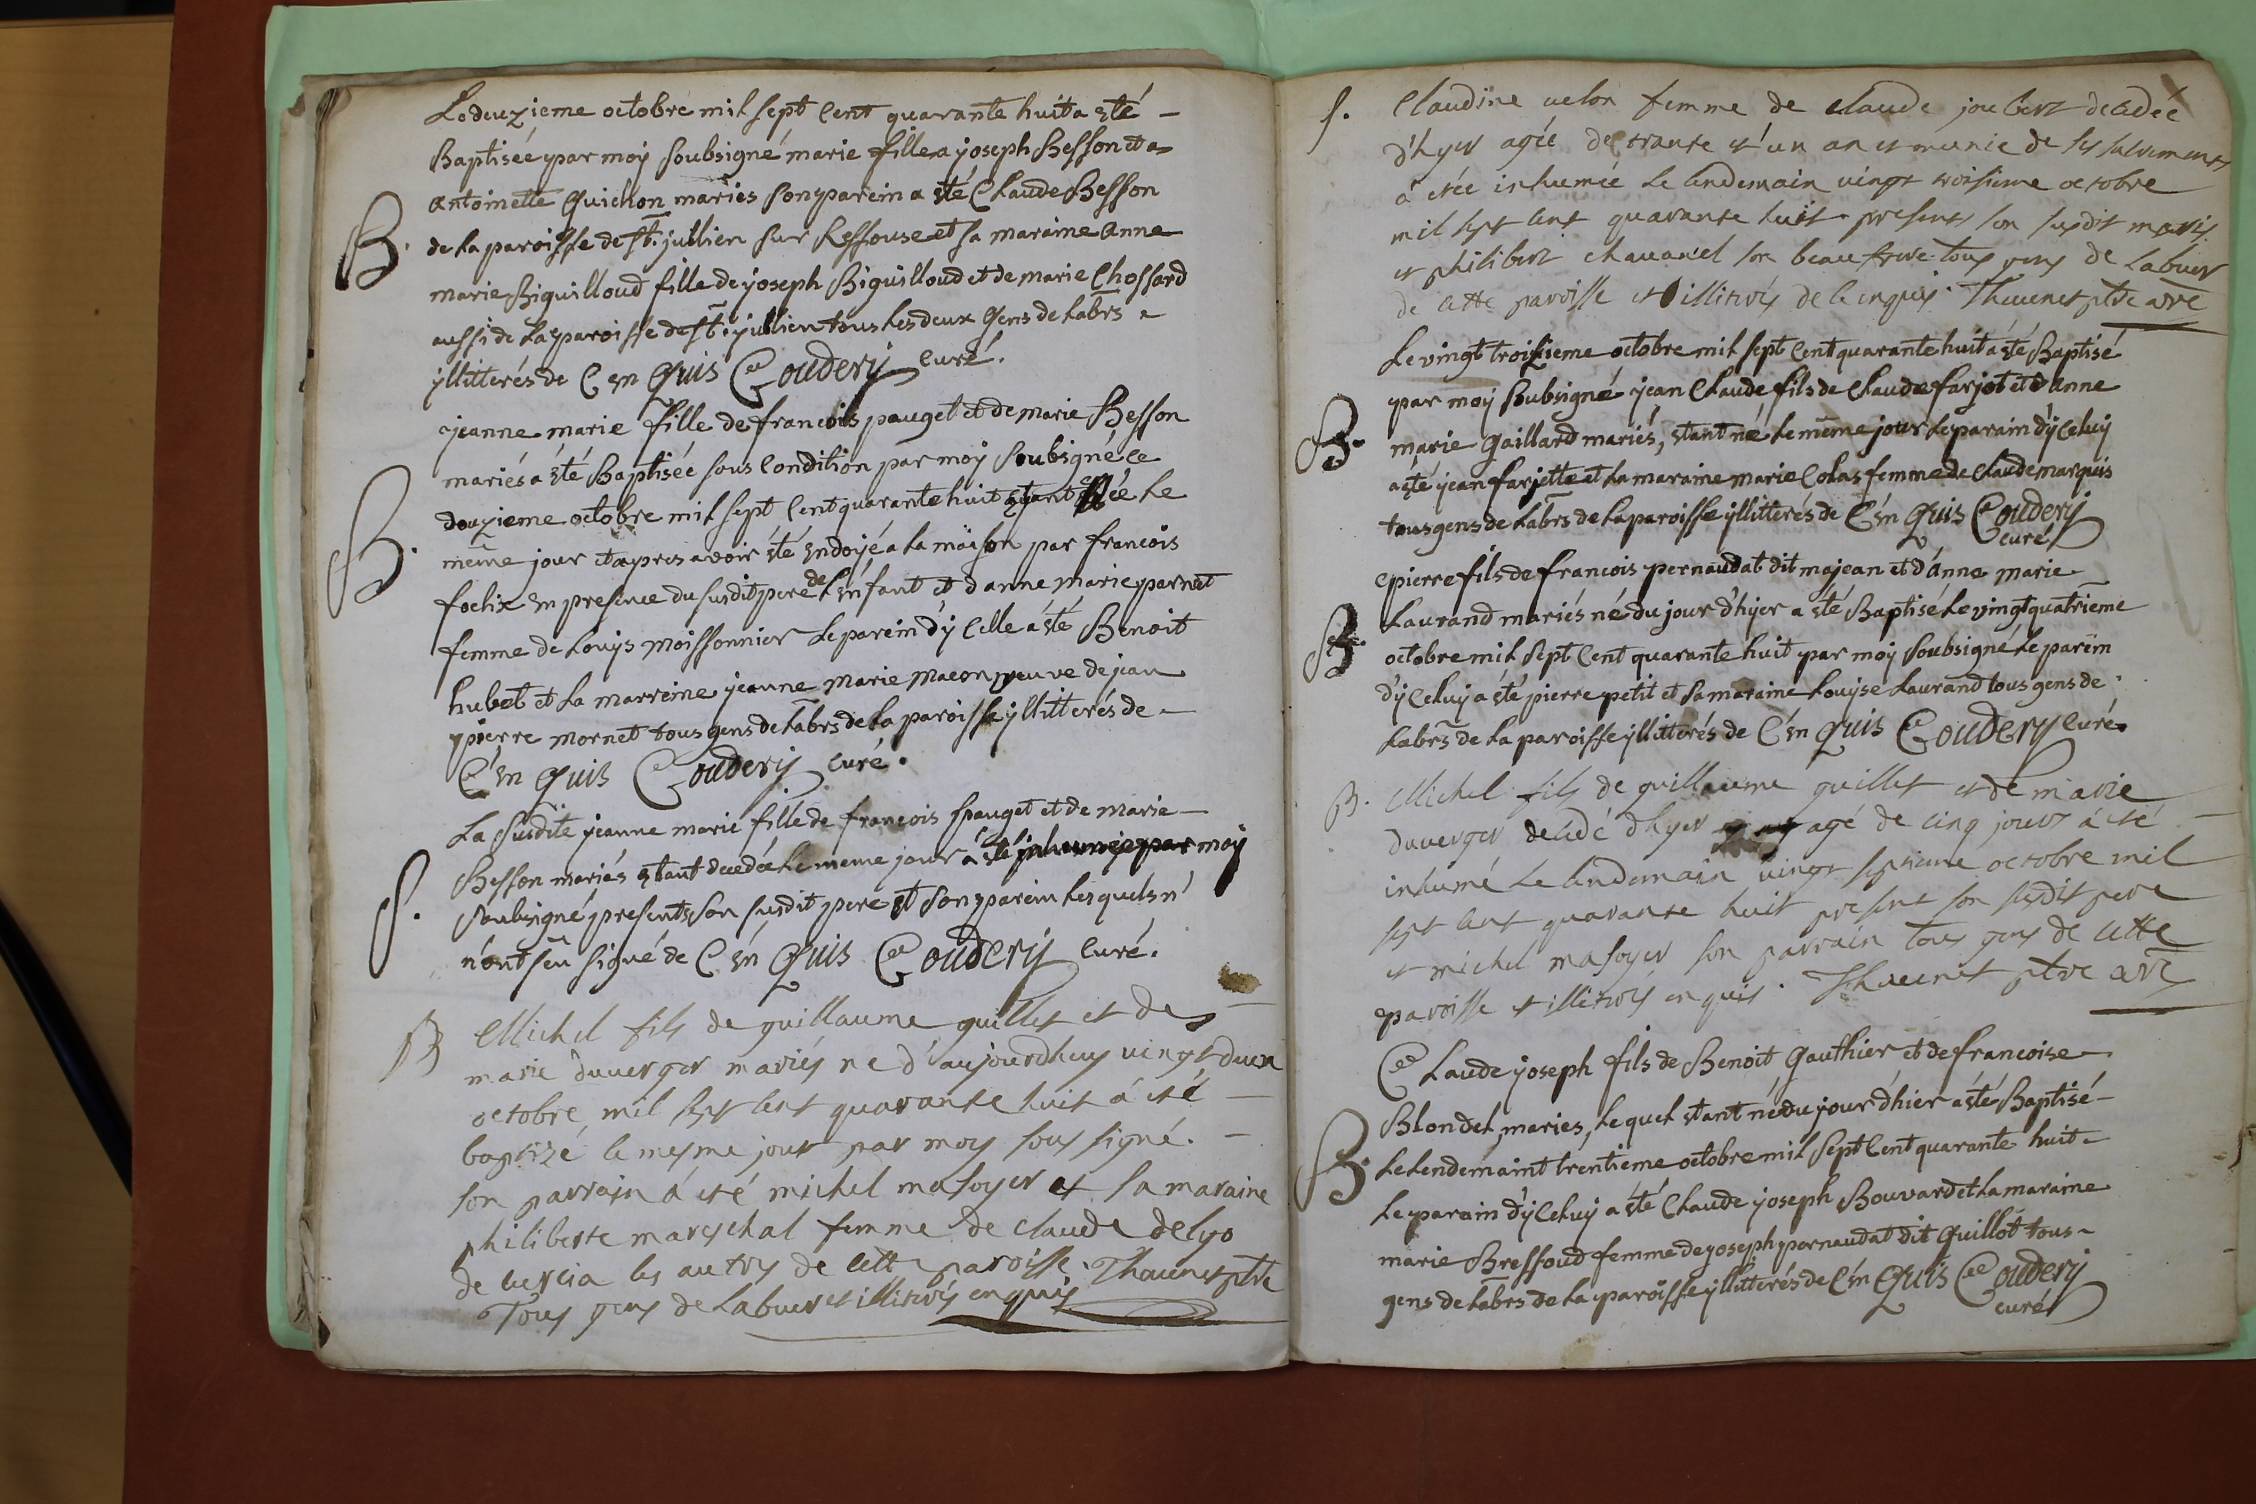 Le deuzieme octobre mil sept Cent quarante huit a sté
Baptisée par moÿ soubsigné marie fille a joseph Besson et a
antoinette Guichon mariés son parein a sté Claude Besson
B. de la paroisse de st. jullien sur Ressouse et sa maraine anne
marie Biguilloud fille de joseph Biguilloud et de marie Chossard
aussi de la paroisse de st. jullien tous les deux gens de labrs
ÿllitterés de C en Quis Coudery Curé.
jeanne marie fille de francois pauget et de marie Besson
mariés a sté Baptisée sous Condition par moÿ soubsigné le
douzieme octobre mil sept Cent quarante huit stant née le
B. même jour et apres avoir sté endoÿé a la maison par francois
foelix en presence du susdit pere de Lenfant et d anne marie parnet
femme de Louÿs moissonnier Le parein dÿCelle a sté Benoit
hubet et La marreine jeanne marie macon veuve de jean
pierre mornet tous gens de labrs de La paroisse ÿllitterés de
C'en Quis Coudery Curé.
La susdite jeanne marie fille de francois pauget et de marie
Besson mariés stant decedée Le meme jour á sté inhumée par moÿ
S. soubsigné presents son susdit pere et son parein Lesquels n'
n'ont sçu signé de C'en Quis Coudery Curé.
B Michel fils de guillaume guillet et de
marie duverger mariés ne d'aujourdhuy vingt deux
octobre mil sept cent quarante huit á eté
baptizé le mesme jour par moy sous signé.
son parrain á eté michel masoyer et sa maraine
philiberte mareschal femme de claude delyo
de cuersia les autres de cette paroisse. Thavenet ptre
Tous gens de Labuer et illiterés enquis
S. Claudine velon femme de claude joubert decedée
d'hyer agée de trante et un an et munie de ses sacremens
á etée inhumée Le lendemain vingt troisieme octobre
mil sept cent quarante huit presents son susdit maris
et philibert chavanel son beau frere tous gens de Labuer
de cette paroisse et illiterés de ce enquis. Thavenet ptre
Le vingt troisieme octobre mil sept Cent quarante huit á sté Baptisé
par moÿ soubsigné jean Claude fils de Claude farjot et d'anne
B. marie gaillard mariés, stant né Le même jour Le parain dÿCeluÿ
a sté jean farjette et La maraine marie Colas femme de Claude marquis
tous gens de labrs de La paroisse ÿllitterés de C'en Quis Coudery
curé
pierre fils de francois pernaudat dit majean et d'anne marie
Laurand mariés né du jour d'hÿer a sté Baptisé Le vingt quatrieme
B octobre mil sept Cent quarante huit par moÿ soubsigné Le parein
dÿCeluy a sté pierre petit et sa maraine Louÿse Laurand tous gens de
Labrs de La paroisse ÿllitterés de C'en Quis Coudery Curé.
B. Michel fils de guillaume guillet et de marie
duverger decedé d'hyer agé de cinq jours á eté
inhumé Le lendemain vingt septieme octobre mil
sept cent quarante huit present son susdit pere
et michel masoyer son parrain tous gens de cette
paroisse et illiterés enquis. Thavenet ptre
Claude joseph fils de Benoit Gauthier et de francoise
Blondel, mariés, Lequel stant né du jour d'hier á sté Baptisé
B. Le Lendemaint trentieme octobre mil sept Cent quarante huit
Le parain dÿCeluÿ a sté Claude joseph Bouvard et La maraine
marie Bressoud femme de joseph pernaudat dit Quillot tous
gens de labrs de La paroisse ÿllitterés de C'en Quis Coudery
curé